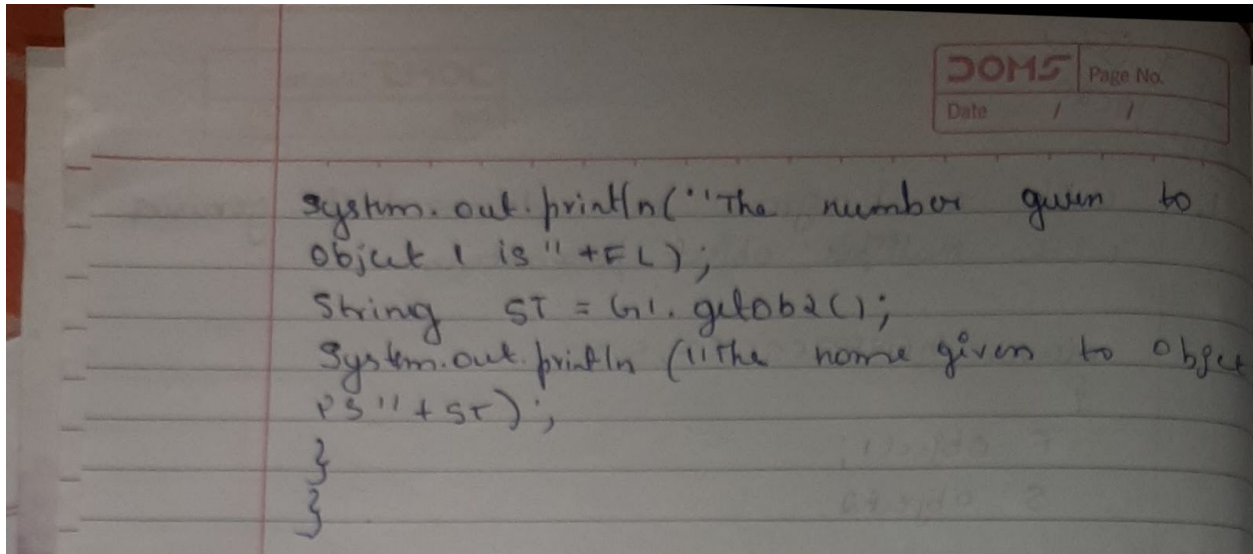 DOMS Page No.
Date / /
System.out.println("The number given to
Object 1 is "+FL);
String ST = G1.getOb2();
System.out.println ("The name given to Objec
is "+ST);
}
}